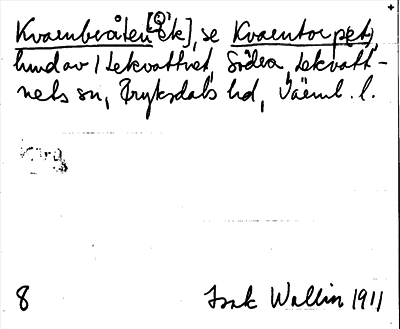 Kvarnbråten [Q] ek], se Kvarntorpet,
hmd av / Lekvattnet, Södra, Lekvatt-
nets sn, Fryksdals hd, Värml. l.
8 Isak Wallin 1911